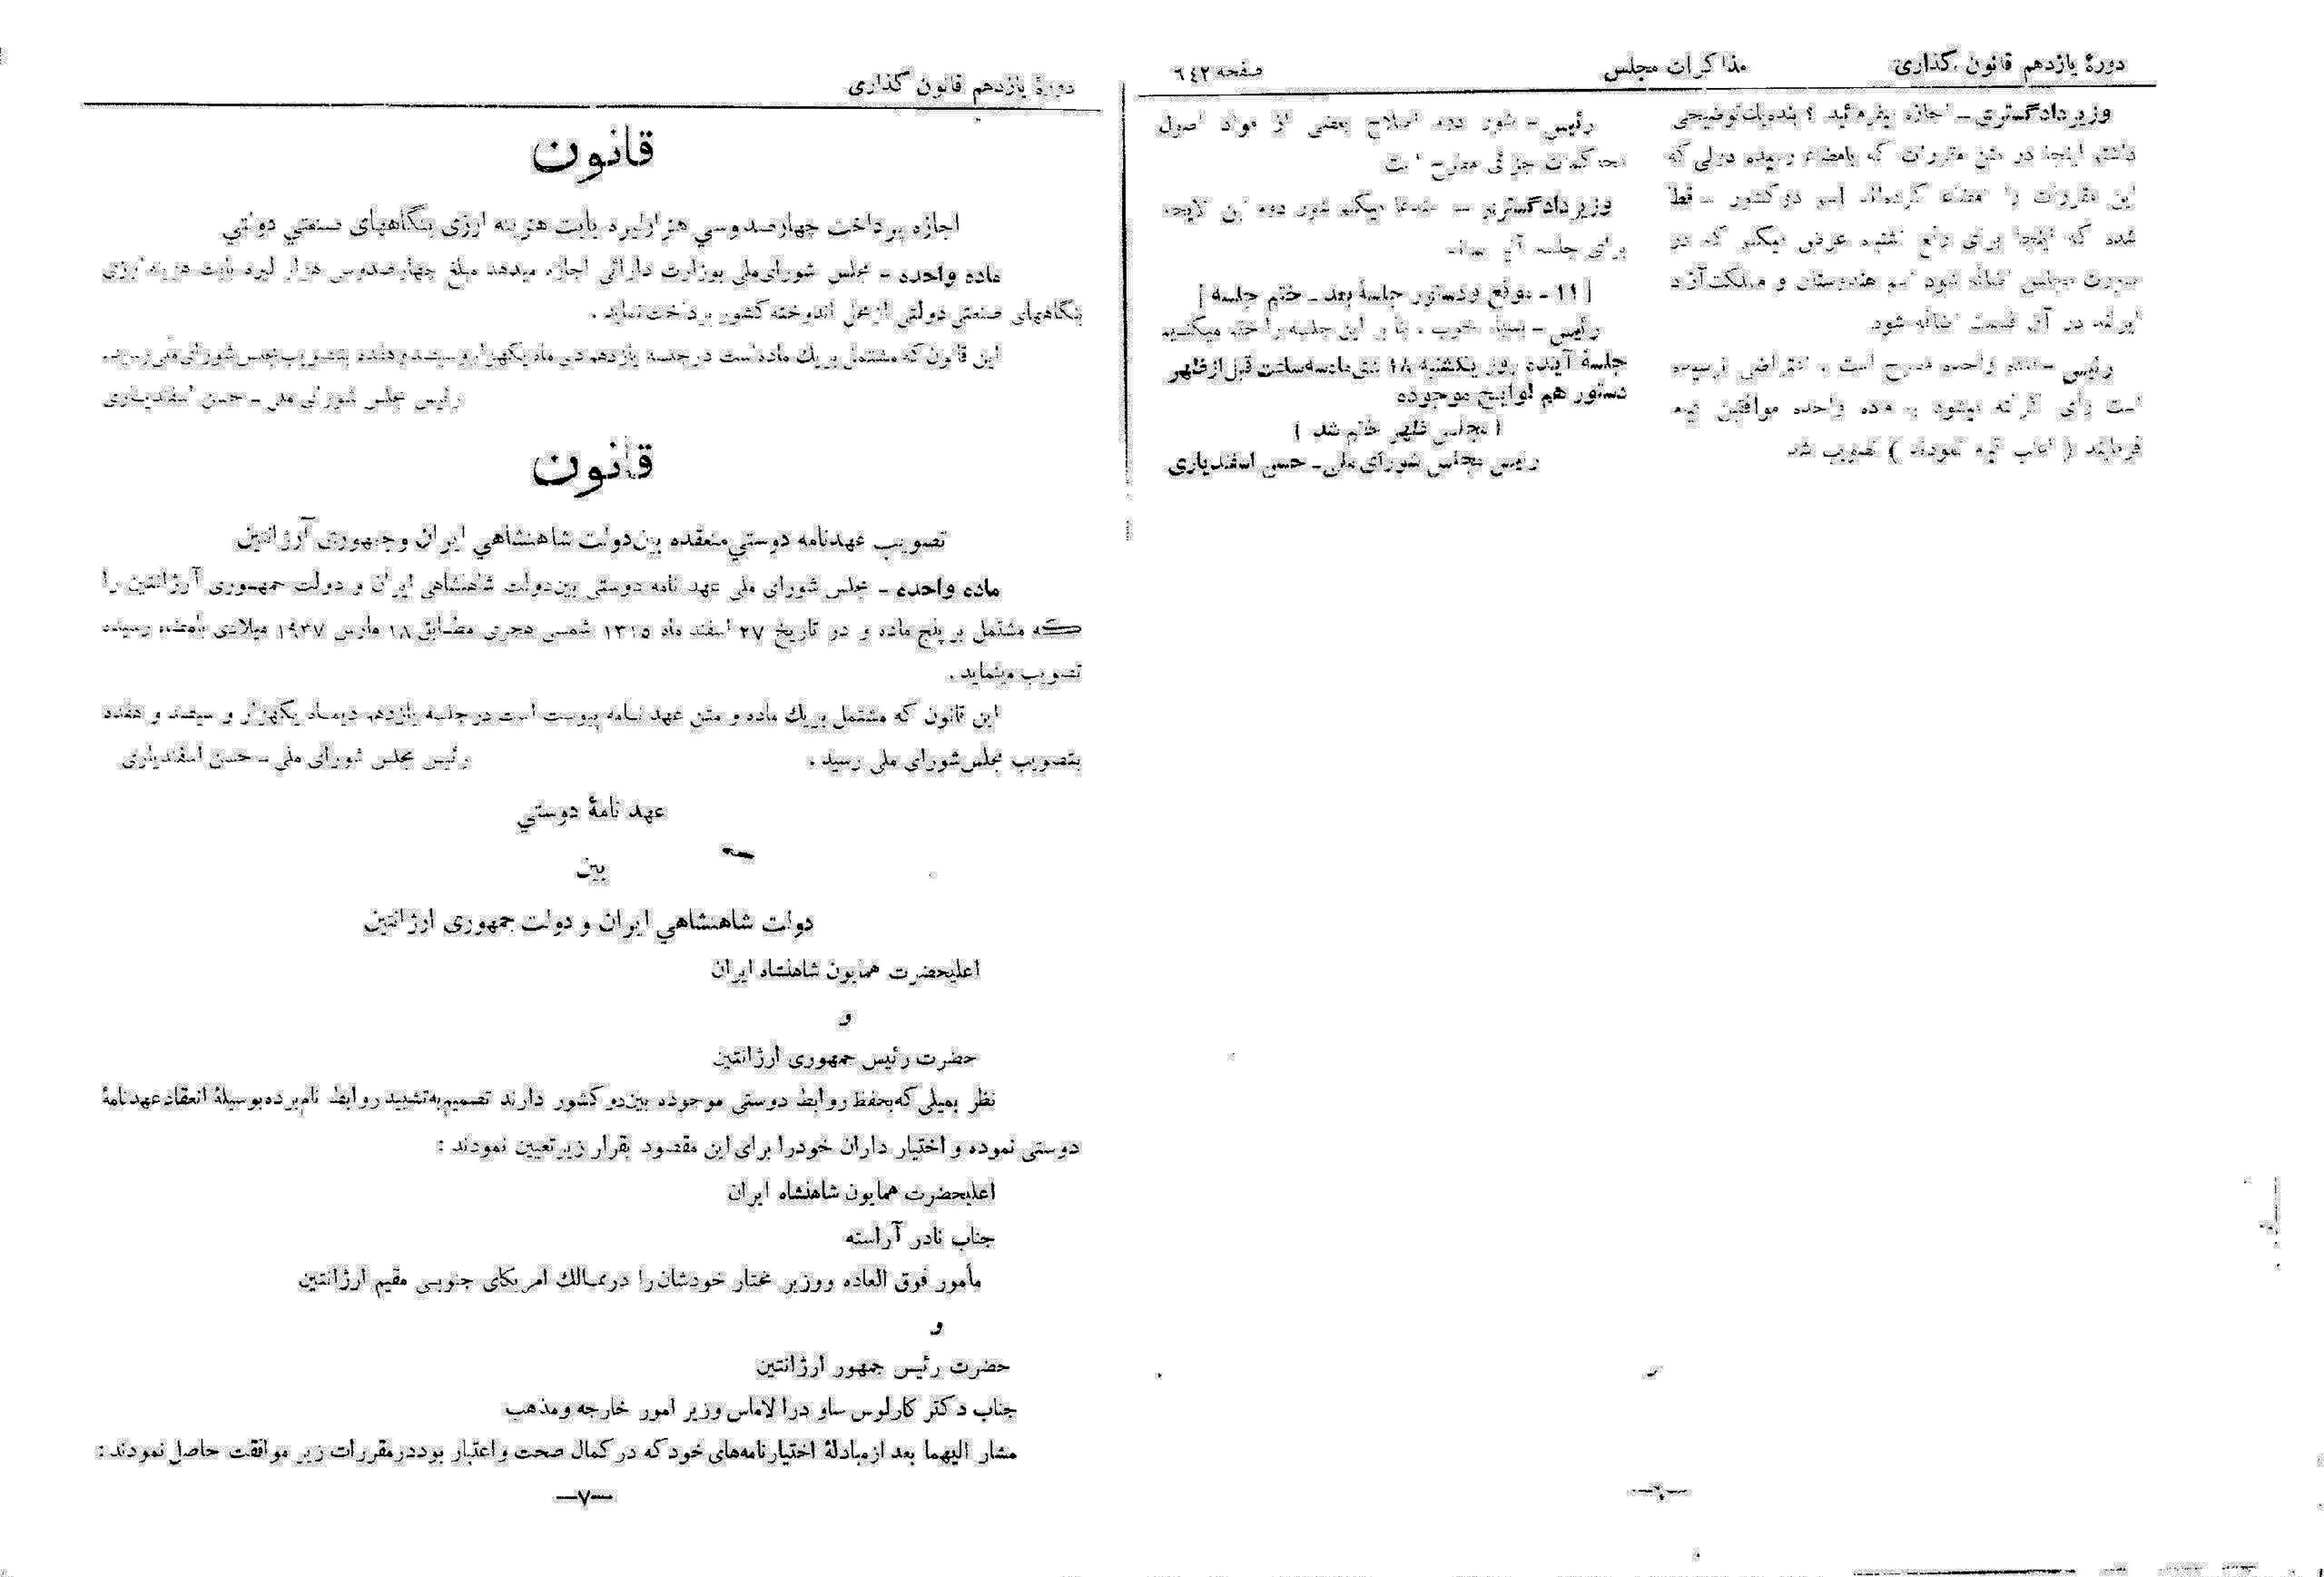 دورهٔ یازدهم قانون گذاری
مذاکرات مجلس
صفحه ٦٤٢
وزیر دادگستری ـ اجازه بفرمائید ؟ بنده یك توضیحی
داشتم اینجا در متن مقررات که بامضاء رسیده دولی که
این مقررات را امضاء کرده‌اند اسم دو کشور
شده که اینجا برای رفع عرض میکنم که در
صورت مجلس اضافه شود اسم هندوستان و مملکت آزاد
ایرلند در آن قسمت اضافه شود
رئیس ـ ماده واحده مطرح است اعتراضی نرسیده
است رأی گرفته میشود به ماده واحده موافقین قیام
فرمایند ( اغلب قیام نمودند ) تصویب شد
رئیس ـ شور دوم اصلاح بعضی از مواد اصول
محاکمات جزائی مطرح است
وزیر دادگستری ـ میکنم شور دوم این لایحه
برای جلسه آتیه بماند
[ ١١ ـ موقع و دستور جلسهٔ بعد ـ ختم جلسه ]
رئیس ـ بسیار خوب . بنا بر این جلسه را ختم میکنیم
جلسهٔ آینده روز یکشنبه ١٨ دیماه سه ساعت قبل از ظهر
دستور هم لوایح موجوده
[ مجلس ظهر ختم شد ]
رئیس مجلس شورای ملی ـ حسن اسفندیاری
دورهٔ یازدهم قانون گذاری
قانون
اجازه پرداخت چهارصد و سی هزار لیره بابت هزینه ارزی بنگاههای صنعتی دولتی
ماده واحده ـ مجلس شورای ملی بوزارت دارائی اجازه میدهد مبلغ چهارصد و سی هزار لیره بابت هزینه ارزی
بنگاههای صنعتی دولتی از محل اندوخته کشور پرداخت نماید .
این قانون که مشتمل بر یك ماده است در جلسه یازدهم دی ماه یکهزار و سیصد و هفده بتصویب مجلس شورای ملی رسید .
رئیس مجلس شورای ملی ـ حسن اسفندیاری
قانون
تصویب عهدنامه دوستی منعقده بین دولت شاهنشاهی ایران و جمهوری آرژانتین
ماده واحده ـ مجلس شورای ملی عهد نامه دوستی بین دولت شاهنشاهی ایران و دولت جمهوری آرژانتین را
که مشتمل بر پنج ماده و در تاریخ ٢٧ اسفند ماه ١٣١٥ شمسی هجری مطابق ١٨ مارس ١٩٣٧ میلادی بامضاء رسیده
تصویب مینماید .
این قانون که مشتمل بر یك ماده و متن عهد نامه پیوست است در جلسه یازدهم دیماه یکهزار و سیصد و هفده
بتصویب مجلس شورای ملی رسید . رئیس مجلس شورای ملی ـ حسن اسفندیاری
عهد نامهٔ دوستی
بین
دولت شاهنشاهی ایران و دولت جمهوری ارژانتین
اعلیحضرت همایون شاهنشاه ایران
و
حضرت رئیس جمهوری ارژانتین
نظر بمیلی که بحفظ روابط دوستی موجوده بین دو کشور دارند تصمیم به تشیید روابط نام برده بوسیلهٔ انعقاد عهدنامهٔ
دوستی نموده و اختیار داران خود را برای این مقصود بقرار زیر تعیین نمودند :
اعلیحضرت همایون شاهنشاه ایران
جناب نادر آراسته
مأمور فوق العاده و وزیر مختار خودشان را در ممالك امریکای جنوبی مقیم ارژانتین
و
حضرت رئیس جمهور ارژانتین
جناب دکتر کارلوس ساو درا لاماس وزیر امور خارجه و مذهب
مشار الیهما بعد از مبادلهٔ اختیارنامه‌های خود که در کمال صحت و اعتبار بود در مقررات زیر موافقت حاصل نمودند :
—٧—